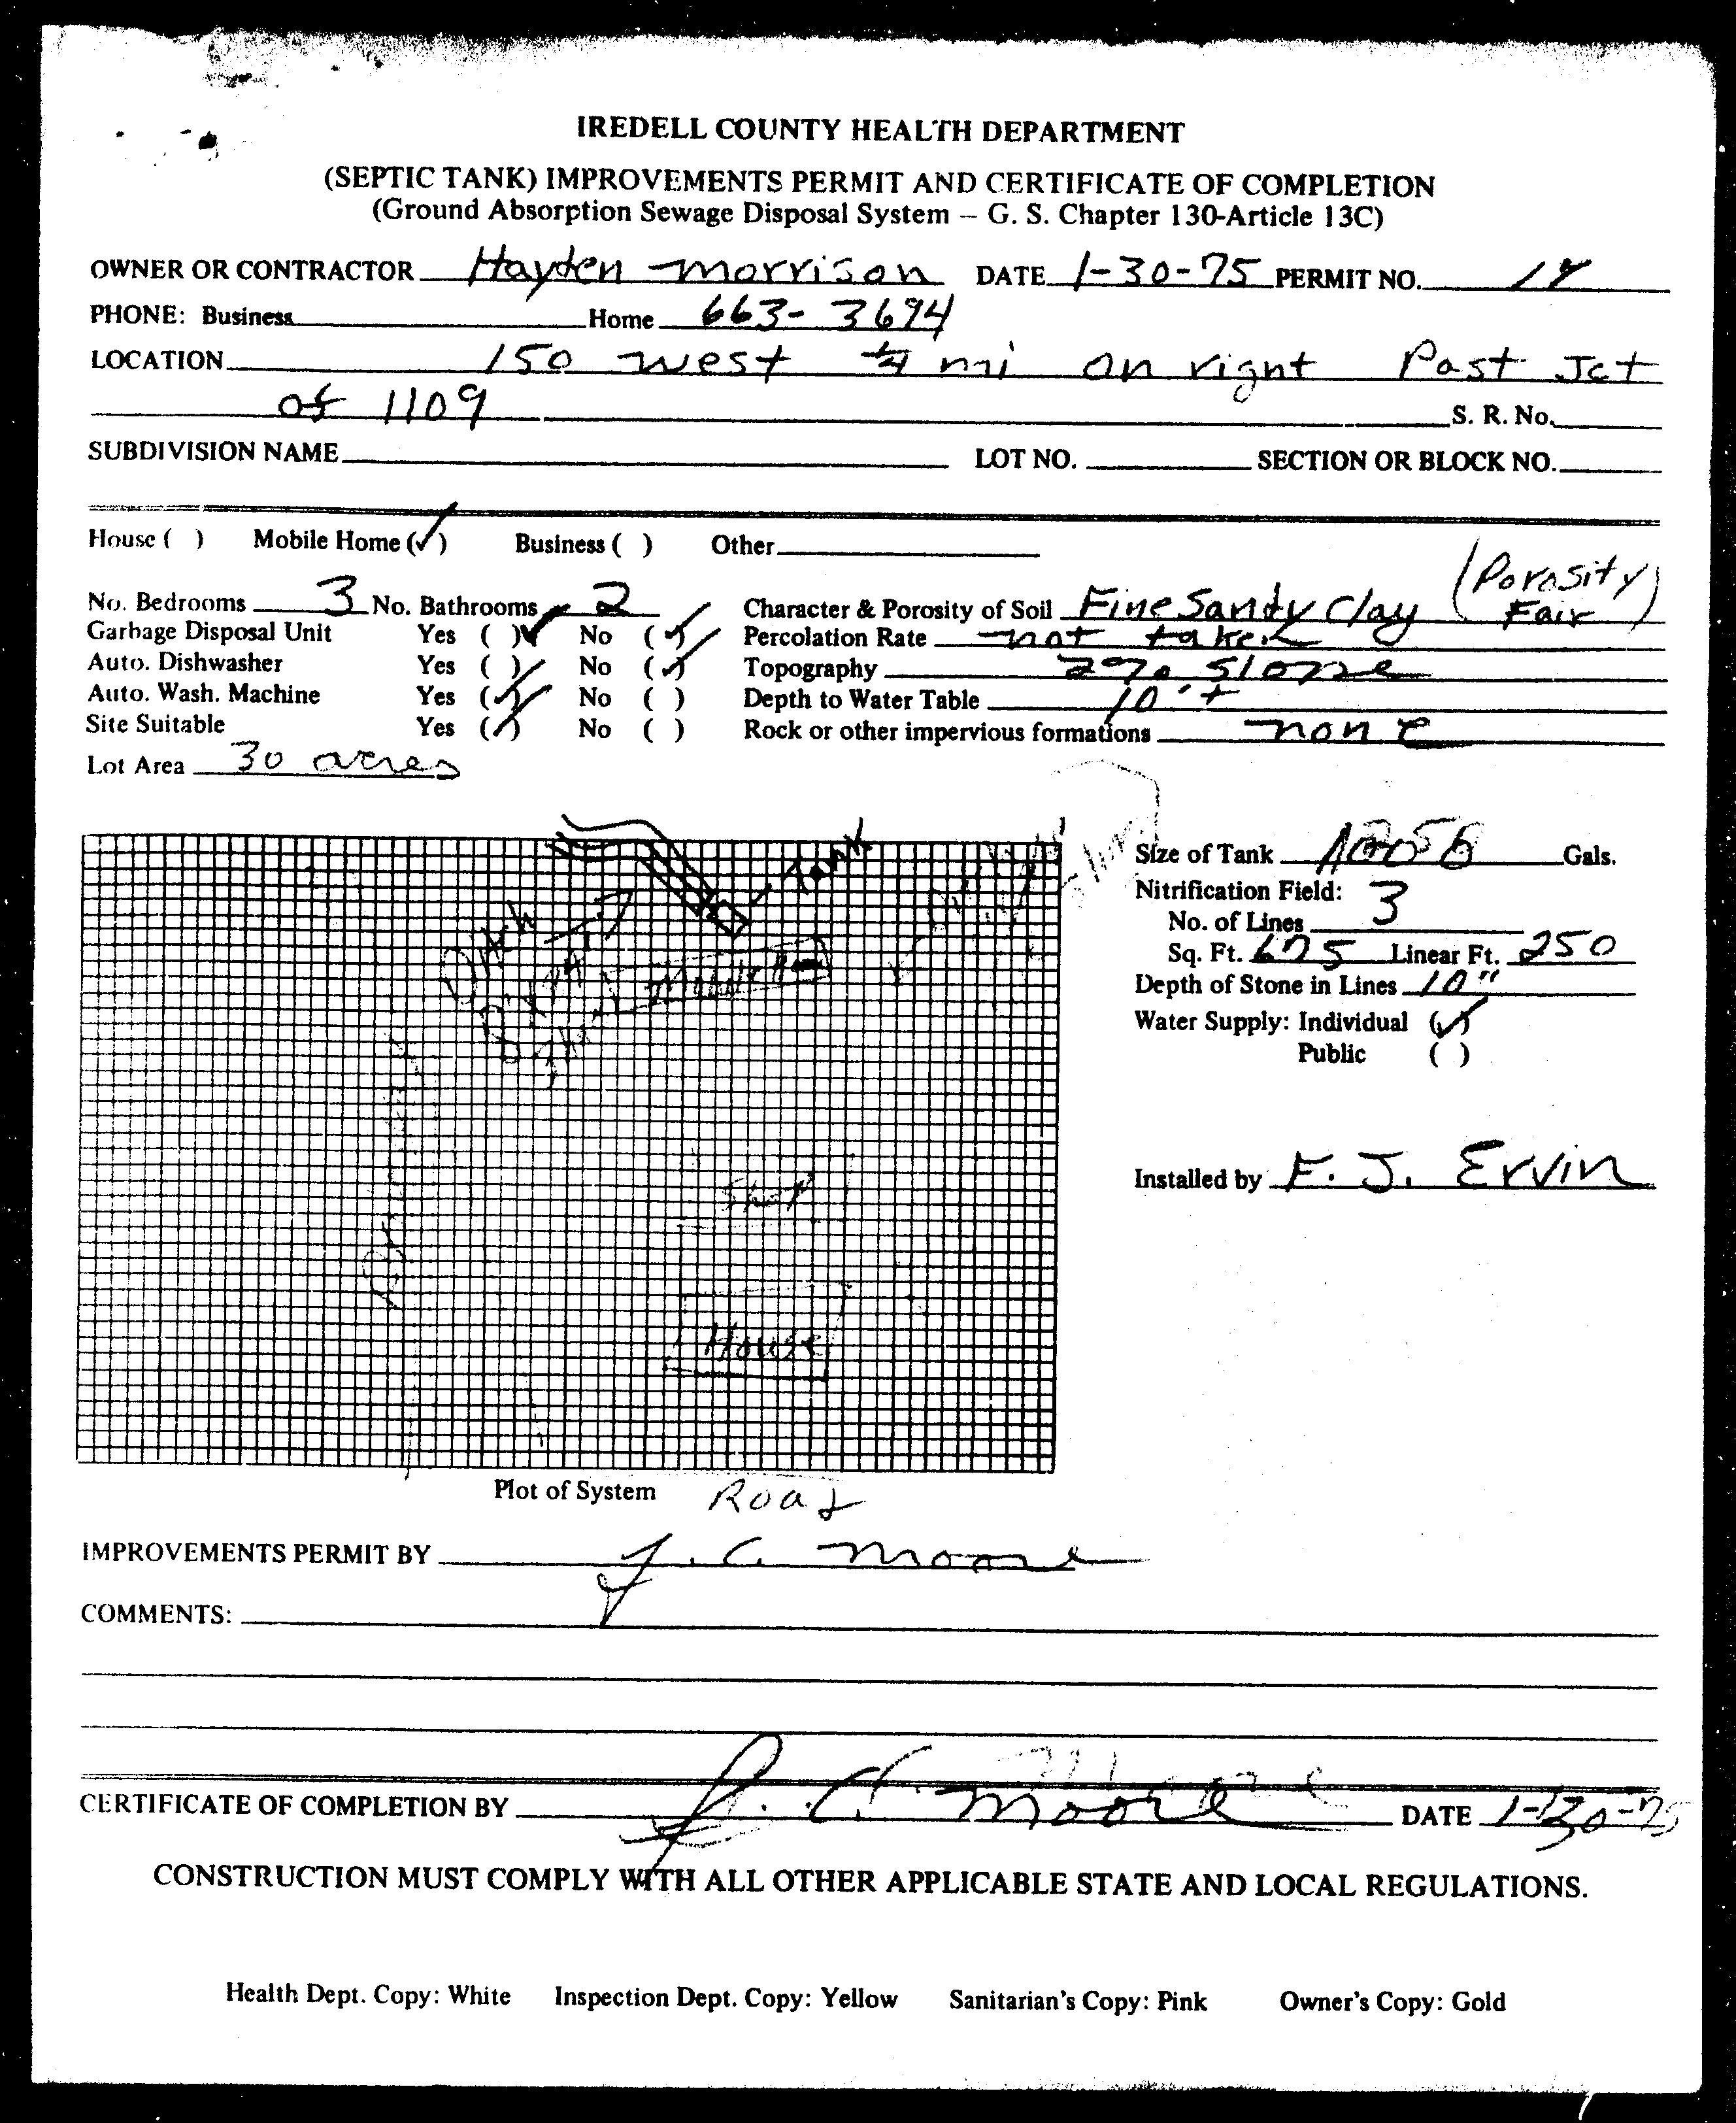 IREDELL COUNTY HEALTH DEPARTMENT
(SEPTIC TANK) IMPROVEMENTS PERMIT AND CERTIFICATE OF COMPLETION
(Ground Absorption Sewage Disposal System – G. S. Chapter 130-Article 13C)
OWNER OR CONTRACTOR Hayden Morrison DATE 1-30-75 PERMIT NO.
PHONE: Business Home 663-3694
LOCATION 150 west 1/4 mi on right Past Jct
of 1109 S. R. No.
SUBDIVISION NAME LOT NO. SECTION OR BLOCK NO.
House ( ) Mobile Home (✓) Business ( ) Other
(Porosity
No. Bedrooms 3 No. Bathrooms 2 Character & Porosity of Soil Fine Sandy Clay Fair)
Garbage Disposal Unit Yes ( ) No (✓) Percolation Rate not taken
Auto. Dishwasher Yes ( ) No (✓) Topography 2% slope
Auto. Wash. Machine Yes (✓) No ( ) Depth to Water Table 10'+
Site Suitable Yes (✓) No ( ) Rock or other impervious formations none
Lot Area 30 acres
Tank
Ditch
Mobile
Shop
House
Size of Tank Gals.
Nitrification Field:
No. of Lines 3
Sq. Ft. 675 Linear Ft. 250
Depth of Stone in Lines 10"
Water Supply: Individual (✓)
Public ( )
Installed by F. J. Ervin
Plot of System Road
IMPROVEMENTS PERMIT BY J. C. Moore
COMMENTS:
CERTIFICATE OF COMPLETION BY J. C. Moore DATE 1-30-75
CONSTRUCTION MUST COMPLY WITH ALL OTHER APPLICABLE STATE AND LOCAL REGULATIONS.
Health Dept. Copy: White Inspection Dept. Copy: Yellow Sanitarian's Copy: Pink Owner's Copy: Gold